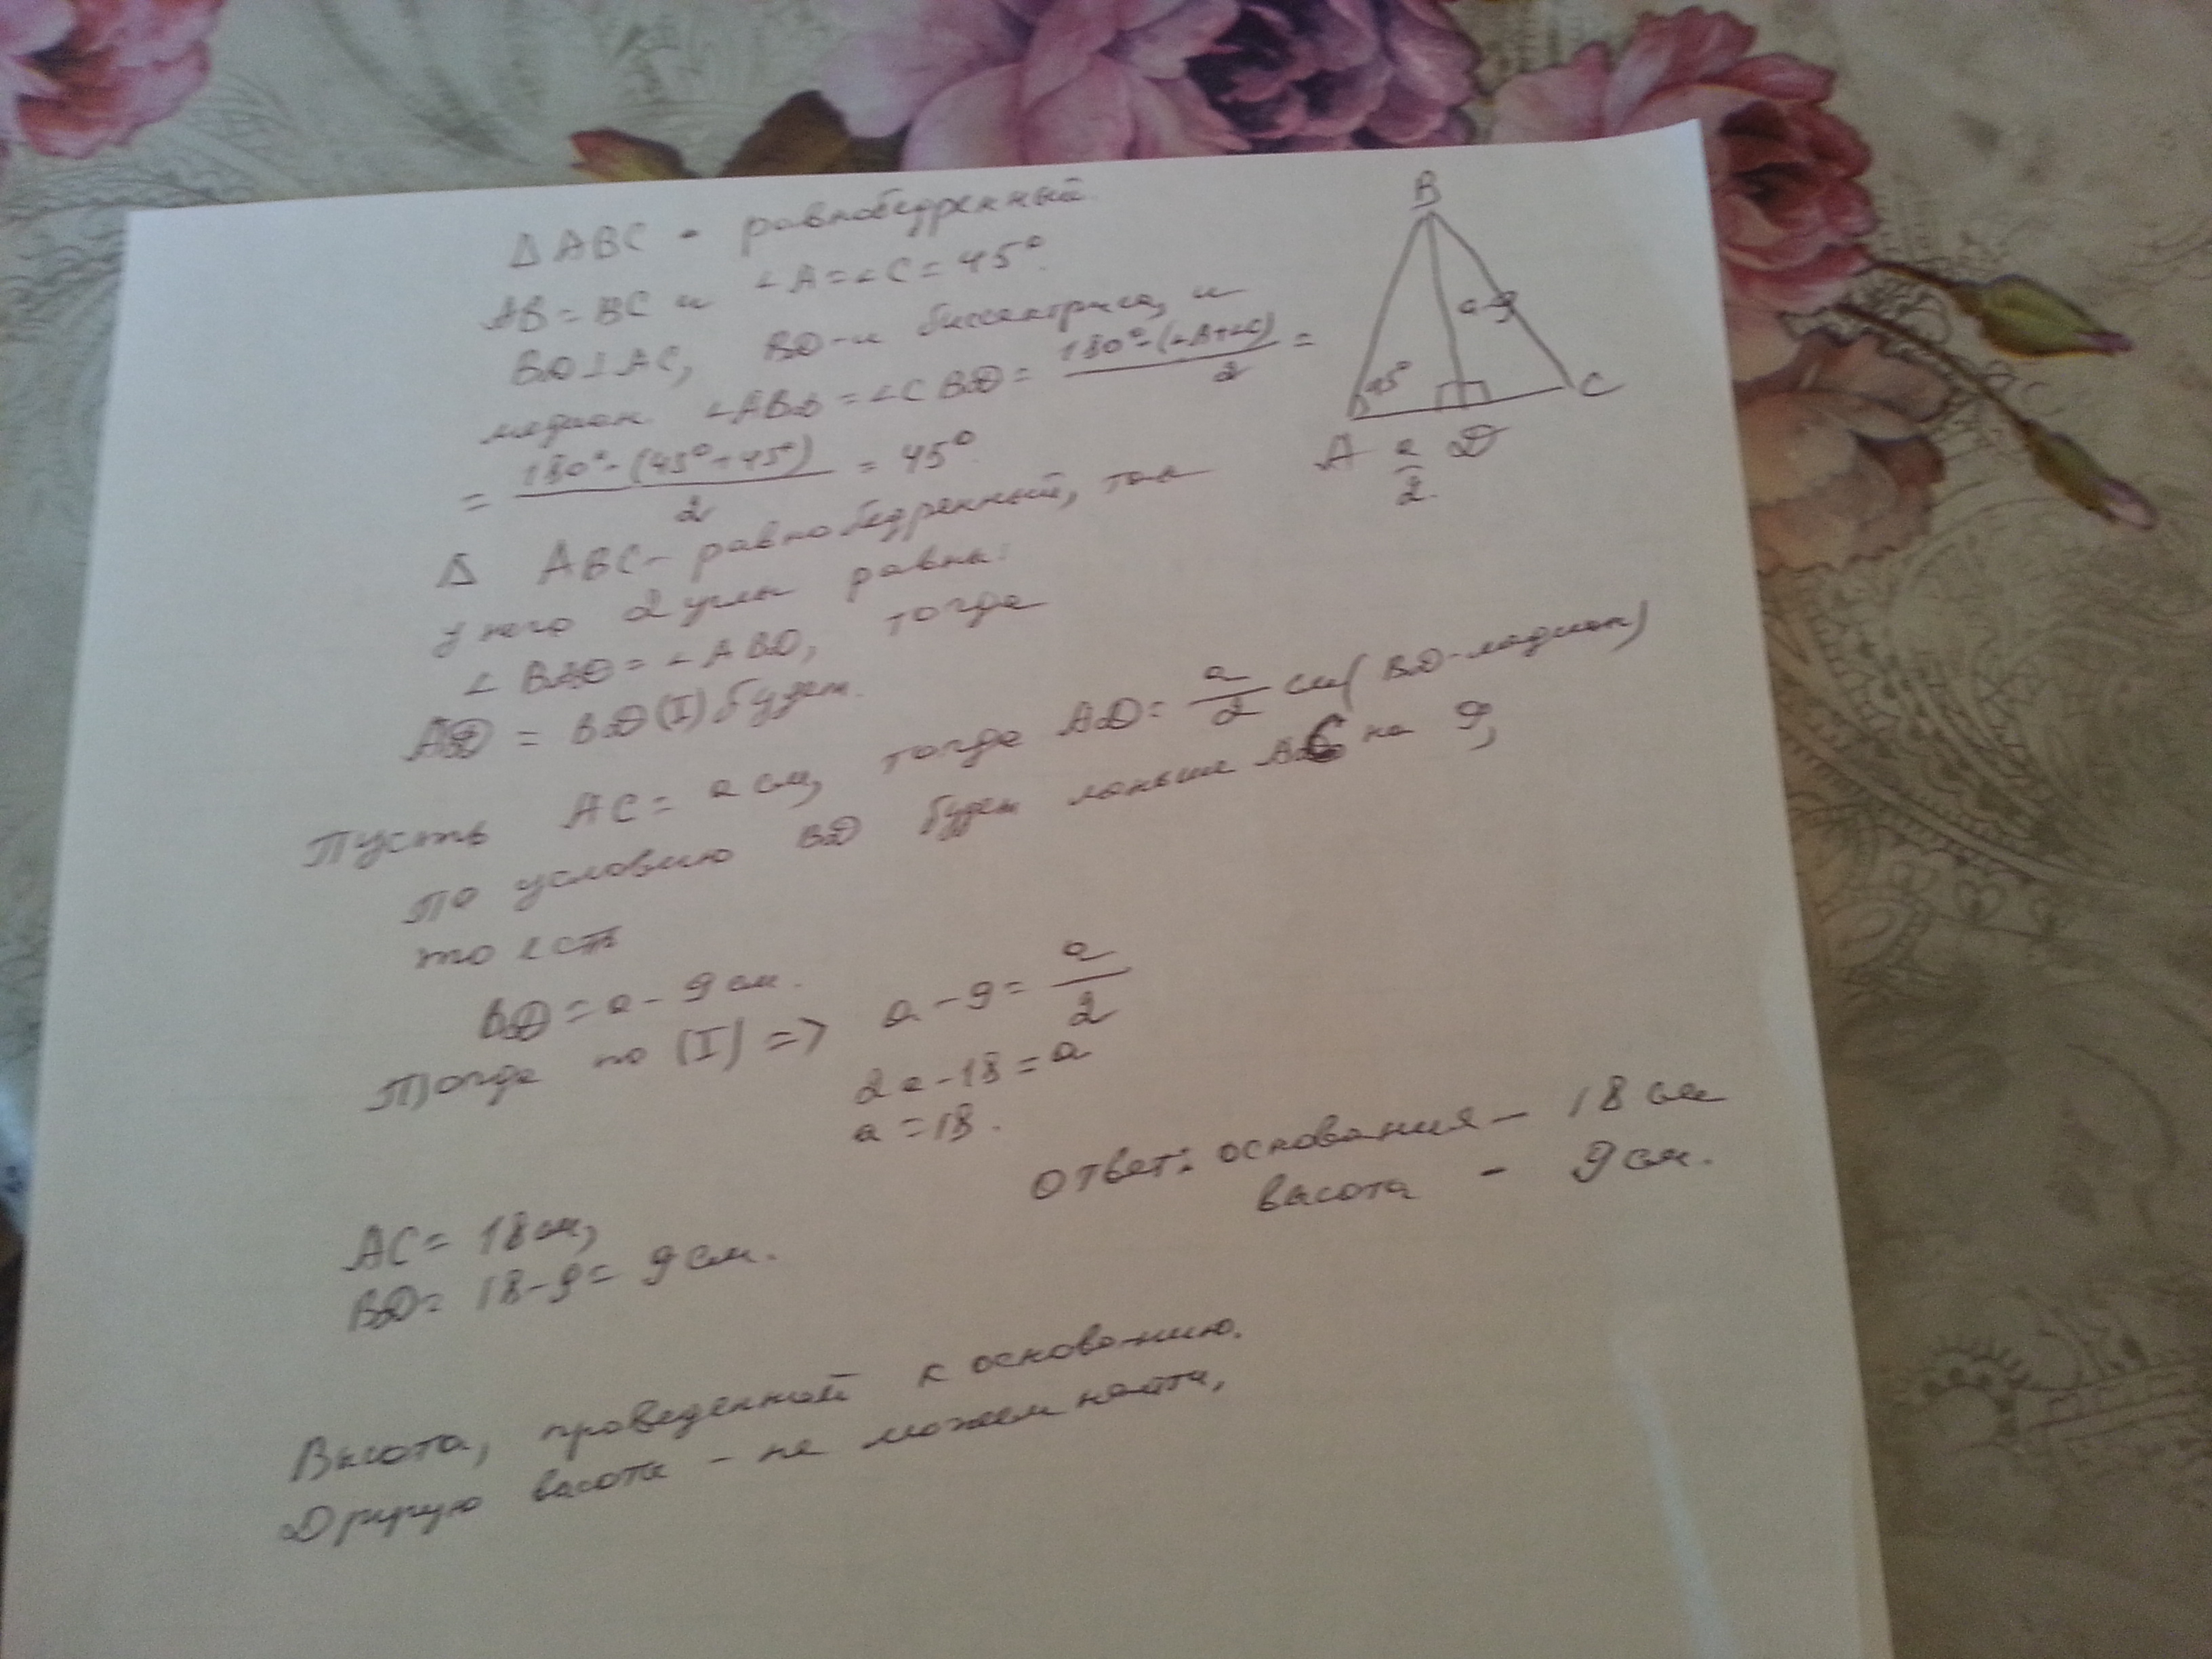 Δ ABC - равнобедренный.
AB = BC и ∠A = ∠C = 45°.
BD⊥AC, BD-и биссектриса, и
медиан. ∠ABD = ∠CBD = (180° - (∠A+∠C))/2 =
= (180° - (45° + 45°))/2 = 45°
Δ ABC - равнобедренный, так
у него 2 углы равны:
∠BAD = ∠ABD, тогда
AD = BD (I) будет.
Пусть AC = a см, тогда AD = a/2 см (BD-медиан)
по условию BD будет меньше на 9,
то есть
BD = a - 9 см.
Тогда по (I) => a - 9 = a/2
2a - 18 = a
a = 18.
Ответ: основания - 18 см
высота - 9 см.
AC = 18 см,
BD = 18 - 9 = 9 см.
Высота, проведенной к основанию.
Другую высоты - не можем найти,
B
a-9
45°
C
A a/2 D